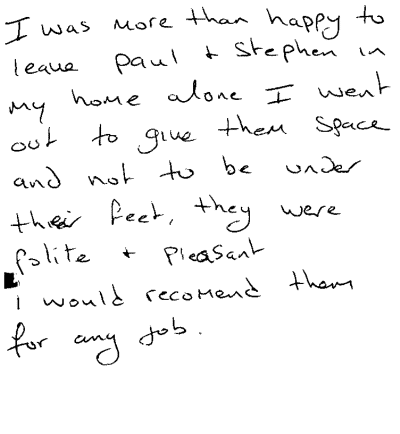 I was more than happy to
leave Paul + Stephen in
my home alone I went
out to give them space
and not to be under
their feet, they were
polite + pleasant
I would recomend them
for any job.